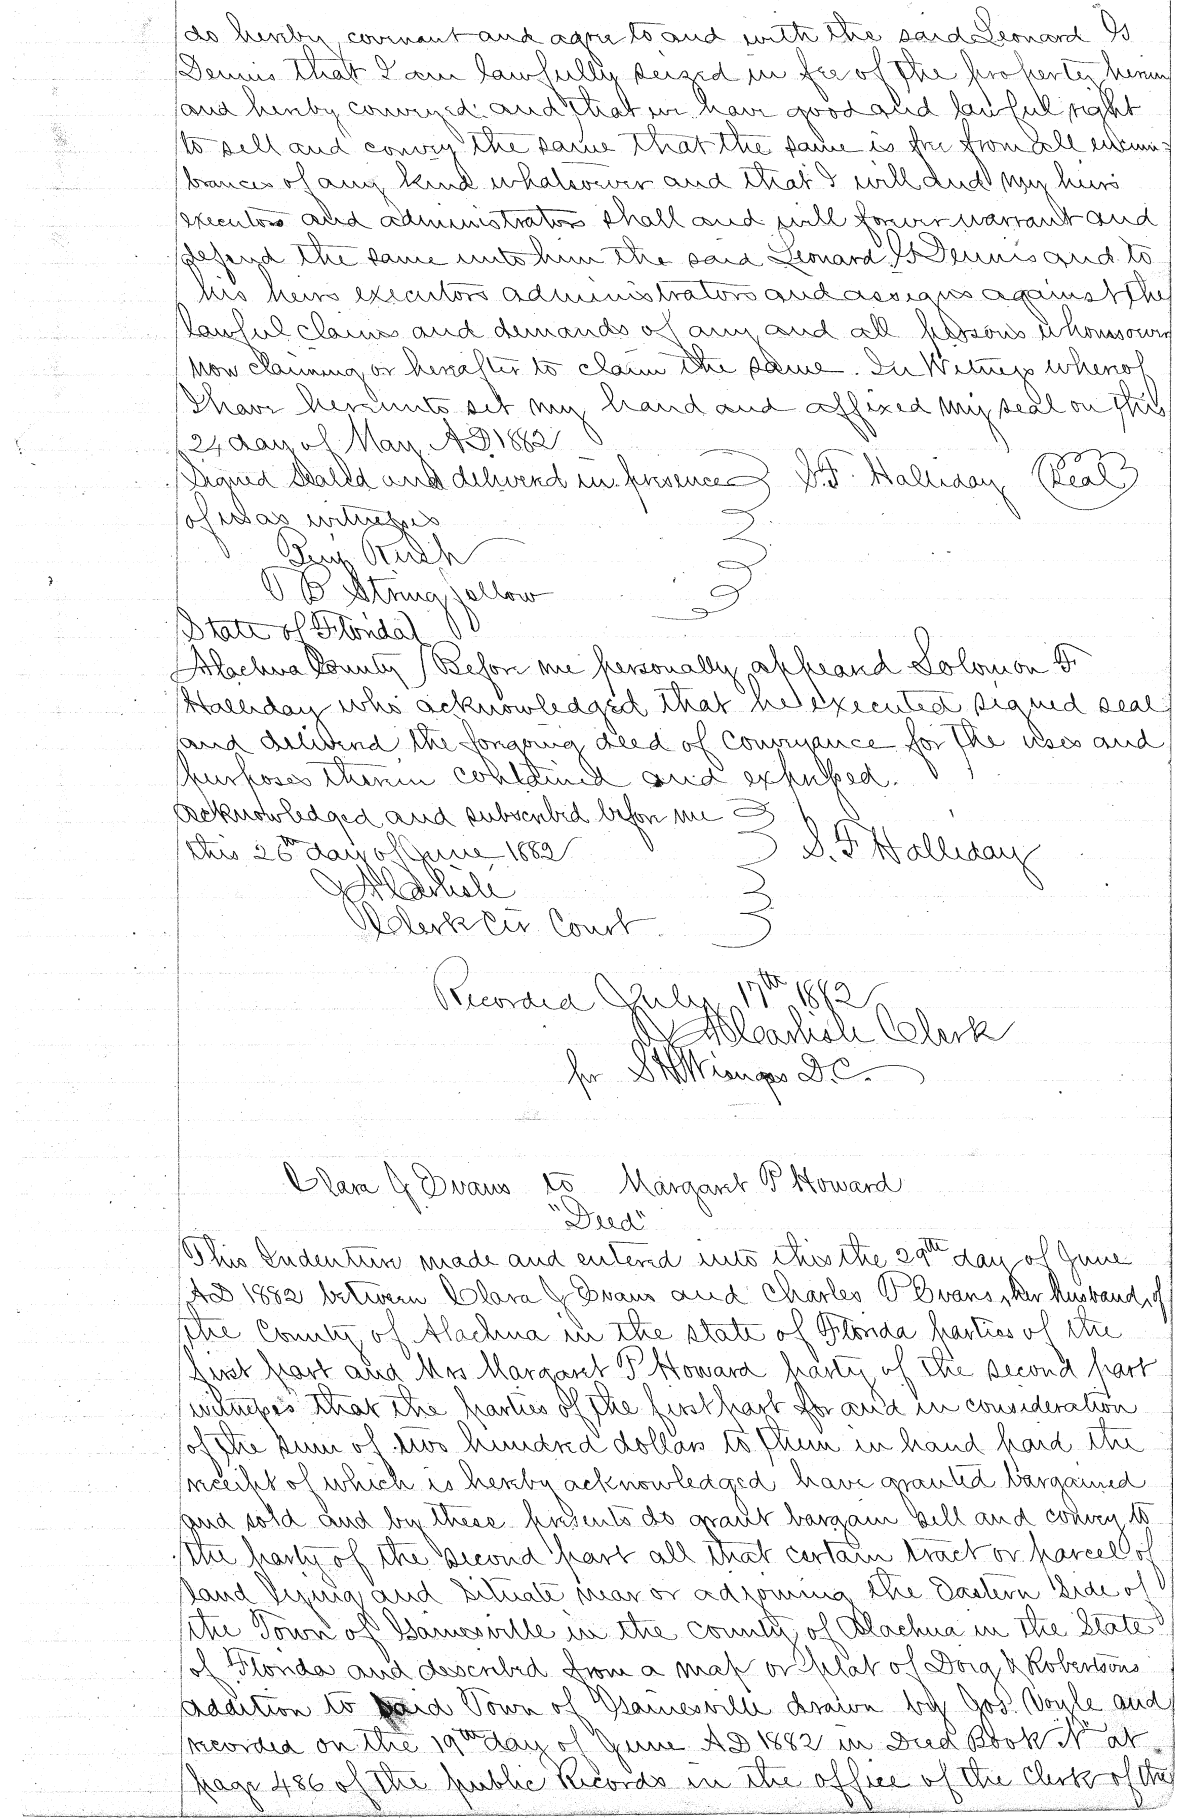 do hereby covenant and agree to and with the said Leonard G
Dennis that I am lawfully seized in fee of the property herein
and hereby conveyed and that we have good and lawful right
to sell and convey the same that the same is free from all encum-
brances of any kind whatsoever and that I will and my heirs
executors and administrators shall and will forever warrant and
defend the same unto him the said Leonard G Dennis and to
his heirs executors administrators and assigns against the
lawful claims and demands of any and all persons whomsoever
now claiming or hereafter to claim the same. In Witness whereof
I have hereunto set my hand and affixed my seal on this
24 day of May AD 1882
Signed Sealed and delivered in presence S.F. Halliday Seal
of us as witnesses
Benj Rush
B Stringfellow
State of Florida
Alachua County Before me personally appeard Solomon F
Halliday who acknowledged that he executed signed seal
and delivered the forgoing deed of conveyance for the uses and
purposes therein contained and expressed.
Acknowledged and subscribed before me
this 26th day of June 1882 S. F Halliday
J A Carlisle
Clerk Cir Court
Recorded July 17th 1882
J A Carlisle Clerk
for S H Wienges D.C.
Clara J Evans to Margaret P Howard
"Deed"
This Indenture made and entered into this the 29th day of June
AD 1882 between Clara J Evans and Charles P Evans, her husband, of
the County of Alachua in the state of Florida parties of the
first part and Mrs Margaret P Howard party of the second part
witness that the parties of the first part for and in consideration
of the sum of two hundred dollars to them in hand paid the
receipt of which is hereby acknowledged have granted bargained
and sold and by these presents do grant bargain sell and convey to
the party of the second part all that certain tract or parcel of
land lying and situate near or adjoining the Eastern Side of
the Town of Gainesville in the county of Alachua in the State
of Florida and described from a map or plat of Doig & Robertsons
addition to said Town of Gainesville drawn by Jos. Voyle and
recorded on the 19th day of June AD 1882 in Deed Book "N" at
page 486 of the public Records in the office of the Clerk of the